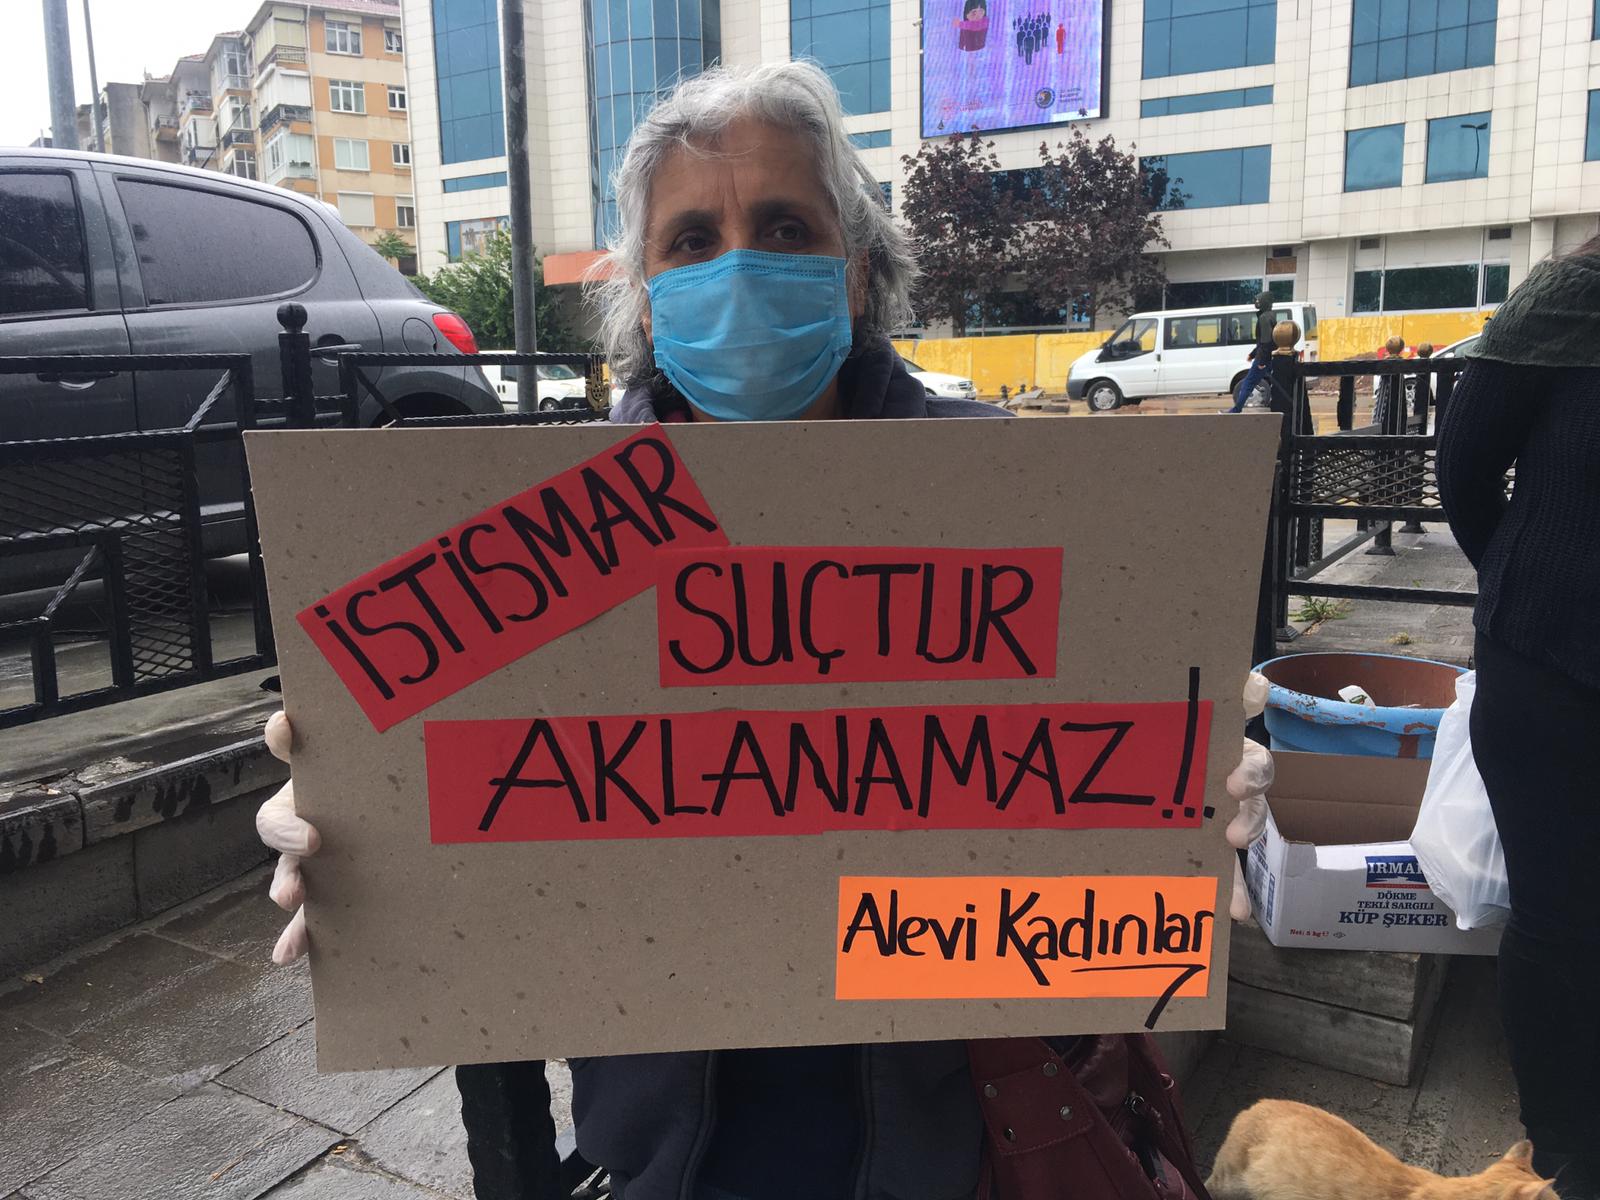 İSTİSMAR
SUÇTUR
AKLANAMAZ!..
Alevi Kadınlar
DÖKME
TEKLİ SARGILI
KÜP ŞEKER
Net: 5 kg e